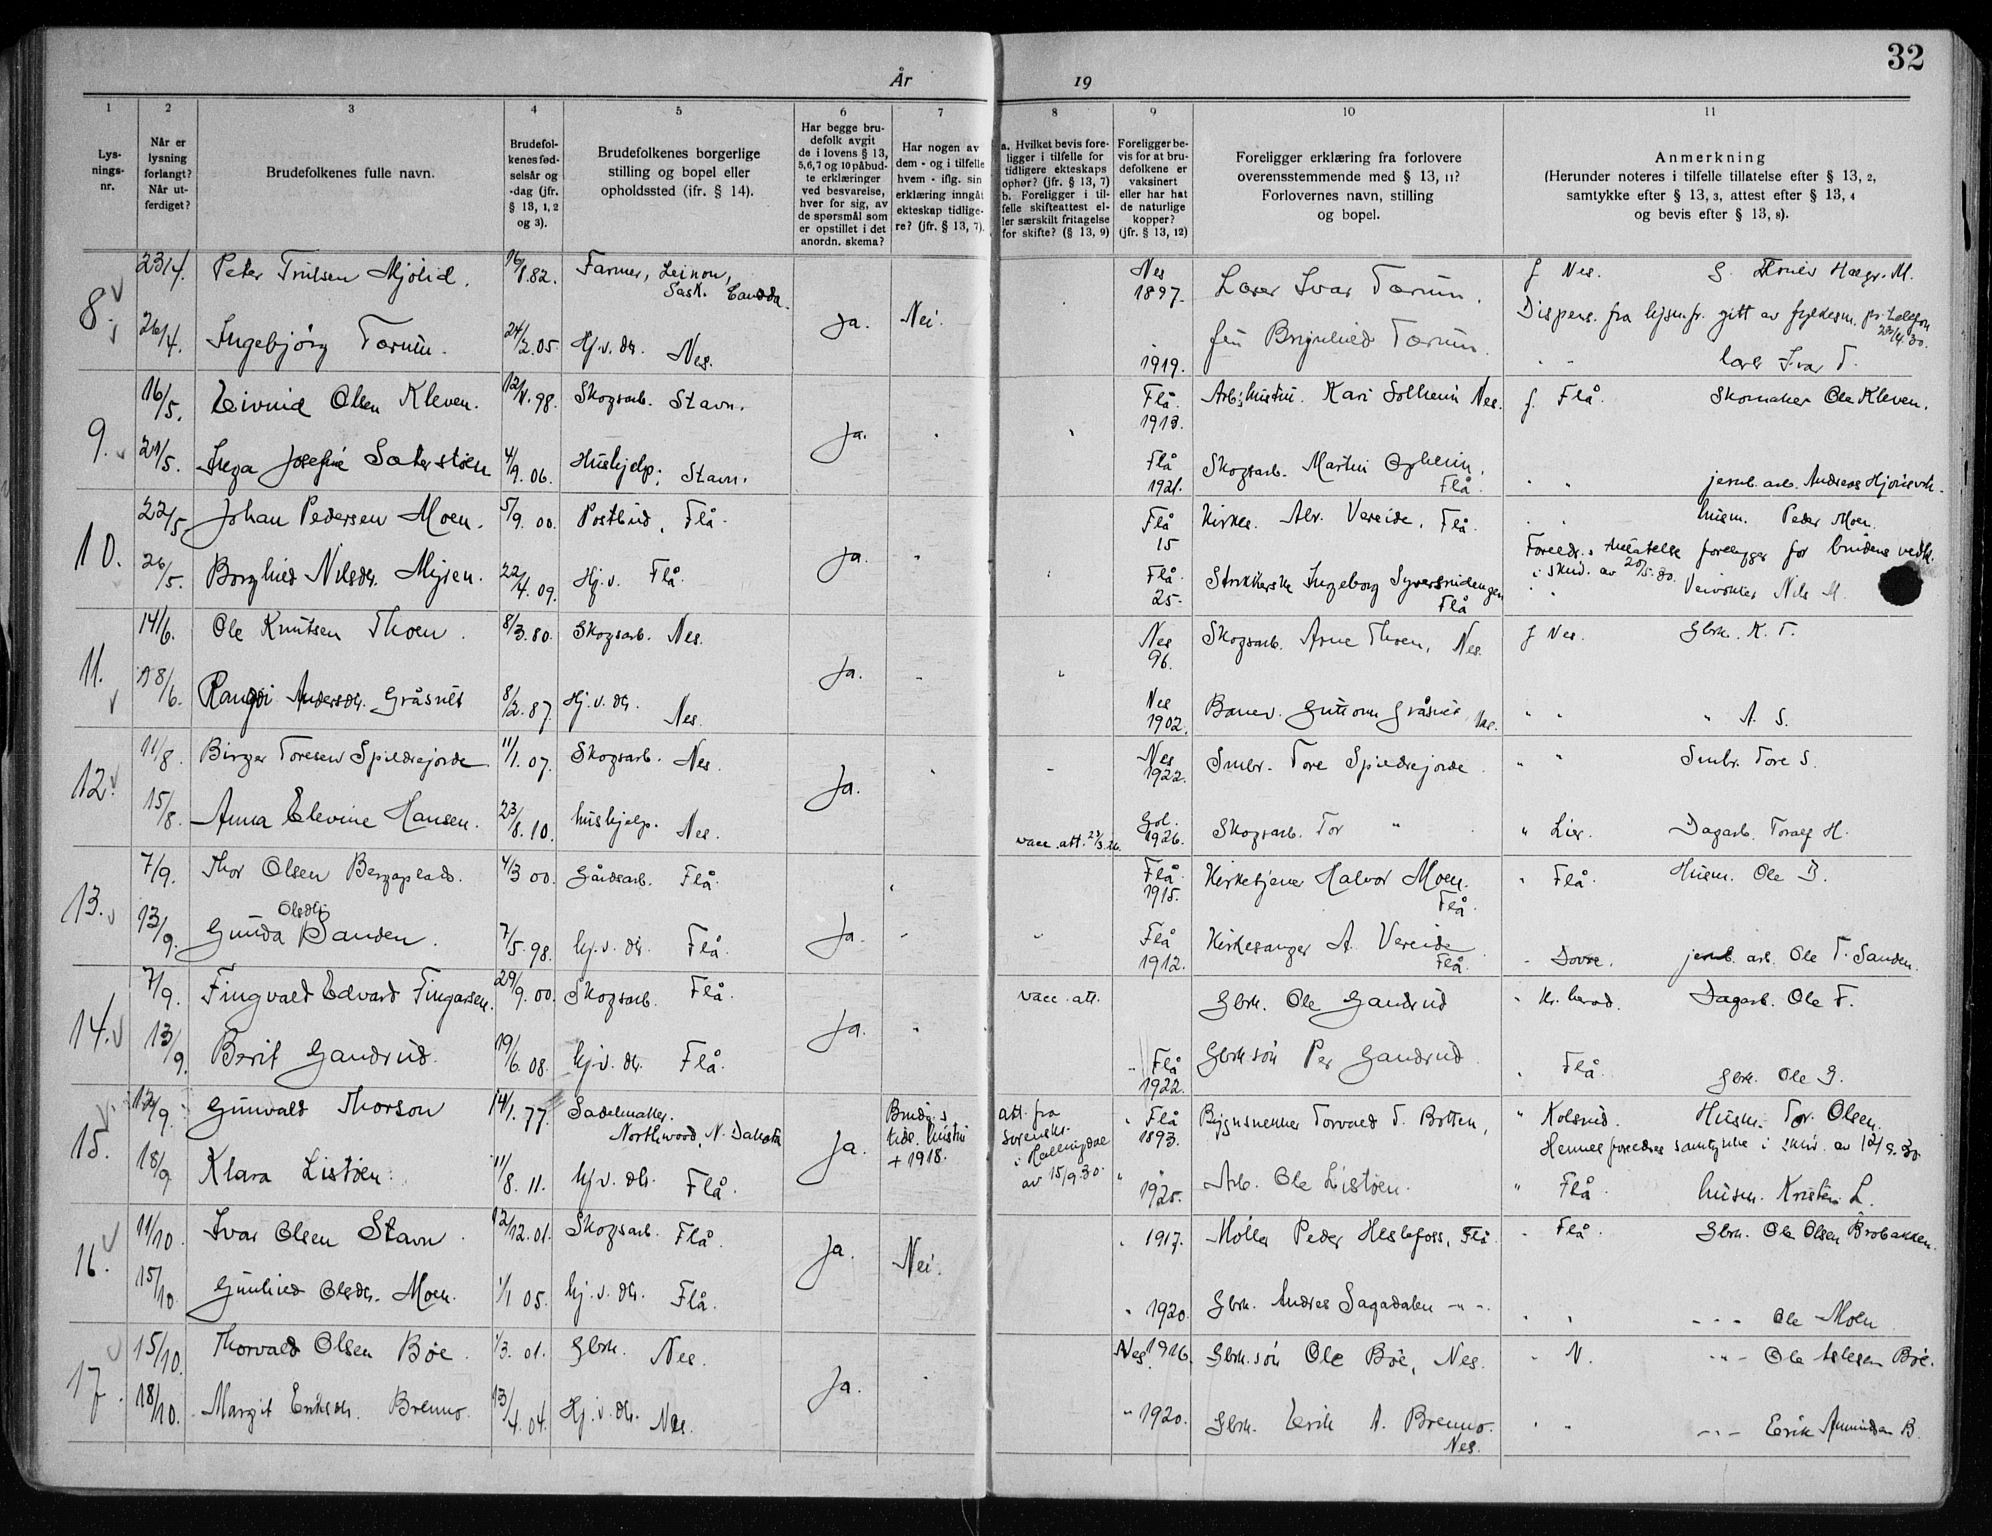 32
År 19
1 2 3 4 5 6 7 8 9 10 11
Lys-
nings-
nr.
Når er
lysning
forlangt?
Når ut-
ferdiget?
Brudefolkenes fulle navn.
Brudefol-
kenes fød-
selsår og
-dag (jfr.
§ 13, 1, 2
og 3).
Brudefolkenes borgerlige
stilling og bopel eller
opholdssted (ifr. § 14).
Har begge bru-
defolk avgit
de i lovens § 13,
5,6,7 og 10 påbud-
te erklæringer
ved besvarelse,
hver for sig, av
de spørsmål som
er opstillet i det
anordn. skema?
Har nogen av
dem - og i tilfelle
hvem - iflg. sin
erklæring inngått
ekteskap tidlige-
re? (jfr. § 13, 7).
a. Hvilket bevis fore-
ligger i tilfelle for
tidligere ekteskaps
ophør? (jfr. § 13, 7)
b. Foreligger i til-
felle skifteattest el-
ler særskilt fritagelse
for skifte? (§ 13, 9)
Foreligger be-
vis for at bru-
defolkene er
vaksinert
eller har hat
de naturlige
kopper?
(jfr. § 13, 12)
Foreligger erklæring fra forlovere
overensstemmende med § 13, 11?
Forlovernes navn, stilling
og bopel.
Anmerkning
(Herunder noteres i tilfelle tillatelse efter § 13, 2,
samtykke efter § 13, 3, attest efter § 13, 4
og bevis efter § 13, 8).
8. 23/4. Peter Trulsen Mjölid. 16/8.82. Farmer, Leinon, Sask. Canada. Ja. Nei. Nes 1897. Lærer Ivar Tærum. f Nes. Hægs. M.
Dispens. fra lysn.fr. gitt av fylkesm. pr. telefon 23/4.30.
26/4. Ingebjörg Tærum. 24/2.05. Hj.v. dtr. Nes. 1919. frü Brynhild Tærum. " " Lærer Ivar T.
9. 16/5. Eivind Olsen Kleven. 12/ .98. Skogsarb. Stavn. Ja. " Flå. 1913. Arb.s hustru. Kari Solheim Nes. f. Flå. Skomaker Ole Kleven.
21/5. Inga Josefine Sæterstöen 4/9. 06. Hushjelp. Stavn. Flå 1921. Skogsarb. Martin Opheim. Flå. " " jernb. arb. Andreas
10. 22/5 Johan Pedersen Moen. 5/9. 00. Postbud, Flå. Ja. " Flå 15 Kirkes. Alv. Vereide, Flå. " " husm. Peder Moen.
Foreldr.s tillatelse foreligger for brudens vedk. i skriv. av 20/5.30.
26/5. Borghild Nilsdtr. Myren. 22/4. 09. Hj.v. Flå. Flå. 25. Strikkerske Ingeborg Syversrudengen Flå " " Veivokter Nils M.
11. 14/6. Ole Knutsen Thoen. 8/3.80. Skogsarb. Nes. Ja. " Nes 96. Skogsarb. Arne Thoen, Nes. f Nes. Gbrk. K. T.
18/6. Rangdi Andersdtr. Gråsvet 8/2.87. Hj.v. dtr. Nes. Nes 1902. Banev. Guttorm Gråsvet, Nes. " " " A. S.
12. 11/8. Birger Toresen Spildrejorde 11/1. 07. Skogsarb. Nes. Ja. " Nes 1922. Smbr. Tore Spildrejorde. " " Smbr. Tore S.
15/8. Anna Elevine Hansen. 23/8. 10. hushjelp. Nes. vacc. att. 23/3.26. Gol. 1926. Skogsarb. Tor " " Lier. Dagarb. Toralf H.
13. 7/9. Thor Olsen Bergaplads. 4/3 00. Gårdsarb. Flå. Ja. " Flå. 1915. Kirketjener Halvor Moen. Flå. " Flå. Husm. Ole B.
13/9. Gunda Olsdtr. Sanden. 7/5.98. hj.v. dtr. Flå " Flå 1912. Kirkesanger A. Vereide Flå. " Dovre. jernb. arb. Ole T. Sanden.
14. 7/9. Fingvald Edvard Fingarsen. 29/9.00. Skogsarb. Flå. Ja. " vacc. att. Gbrk. Ole Gandrud " Kr. herad. Dagarb. Ole F.
13/9. Berit Gandrud. 19/6.08. hj.v. dtr. Flå. " Flå 1922. Gbrk sön Per Gandrud. " Flå. Gbrk. Ole G.
15. 12/9. Gunvald Thorson 14/1.77. Sadelmaker. Northwood, N. Dakota Ja. Brudg.s tidl. hustru + 1918. att. fra sorenskr. i Hallingdal av 15/9.30. " Flå 1893. Bygnsnekker Torvald T. Botten, " Kolsrud. Husm. Tor. Olsen.
Hennes foreldres samtykke i skriv. av 12/9.30
18/9 Klara Listöen. 11/8. 11. hj.v. dtr. Flå. " " 1925. Arb. Ole Listöen. " Flå. husm. Kristen L.
16. 11/10 Ivar Olsen Stavn. 12/12.01. Skogsarb. Flå. Ja. Nei. " 1917. Möller Peder Heslefoss, Flå. " Flå. Gbrk. Ole Olsen Brobakken.
15/10. Gunhild Olsdtr. Moen. 1/1 05. hj.v. dtr. Flå. " 1920. Gbrk. Andres Sagadalen " " " " " Ole Moen.
17. 15/10. Thorvald Olsen Böe. 1/3. 01. Gbrk. Nes. Ja. " Nes. 1916. Gbrk.sön Ole Böe, Nes. " N. " Ole Aslesen Böe.
18/10. Margit Eriksdtr. Brenno. 13/4.04. Hj.v. dtr. Nes. " 1920. Gbrk. Erik A. Brenno. Nes. " " " Erik Amundsen B.